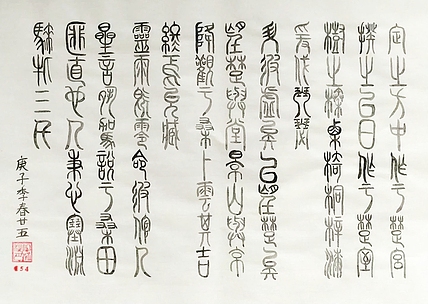 定之方中作于楚宮
揆之以日作于楚室
樹之榛栗椅桐梓漆
爰伐琴瑟
升彼虛矣以望楚矣
望楚與堂景山與京
降觀于桑卜云其吉
終焉允臧
靈雨既零命彼倌人
星言夙駕說于桑田
匪直也人秉心塞淵
騋牝三千
庚子季春廿五